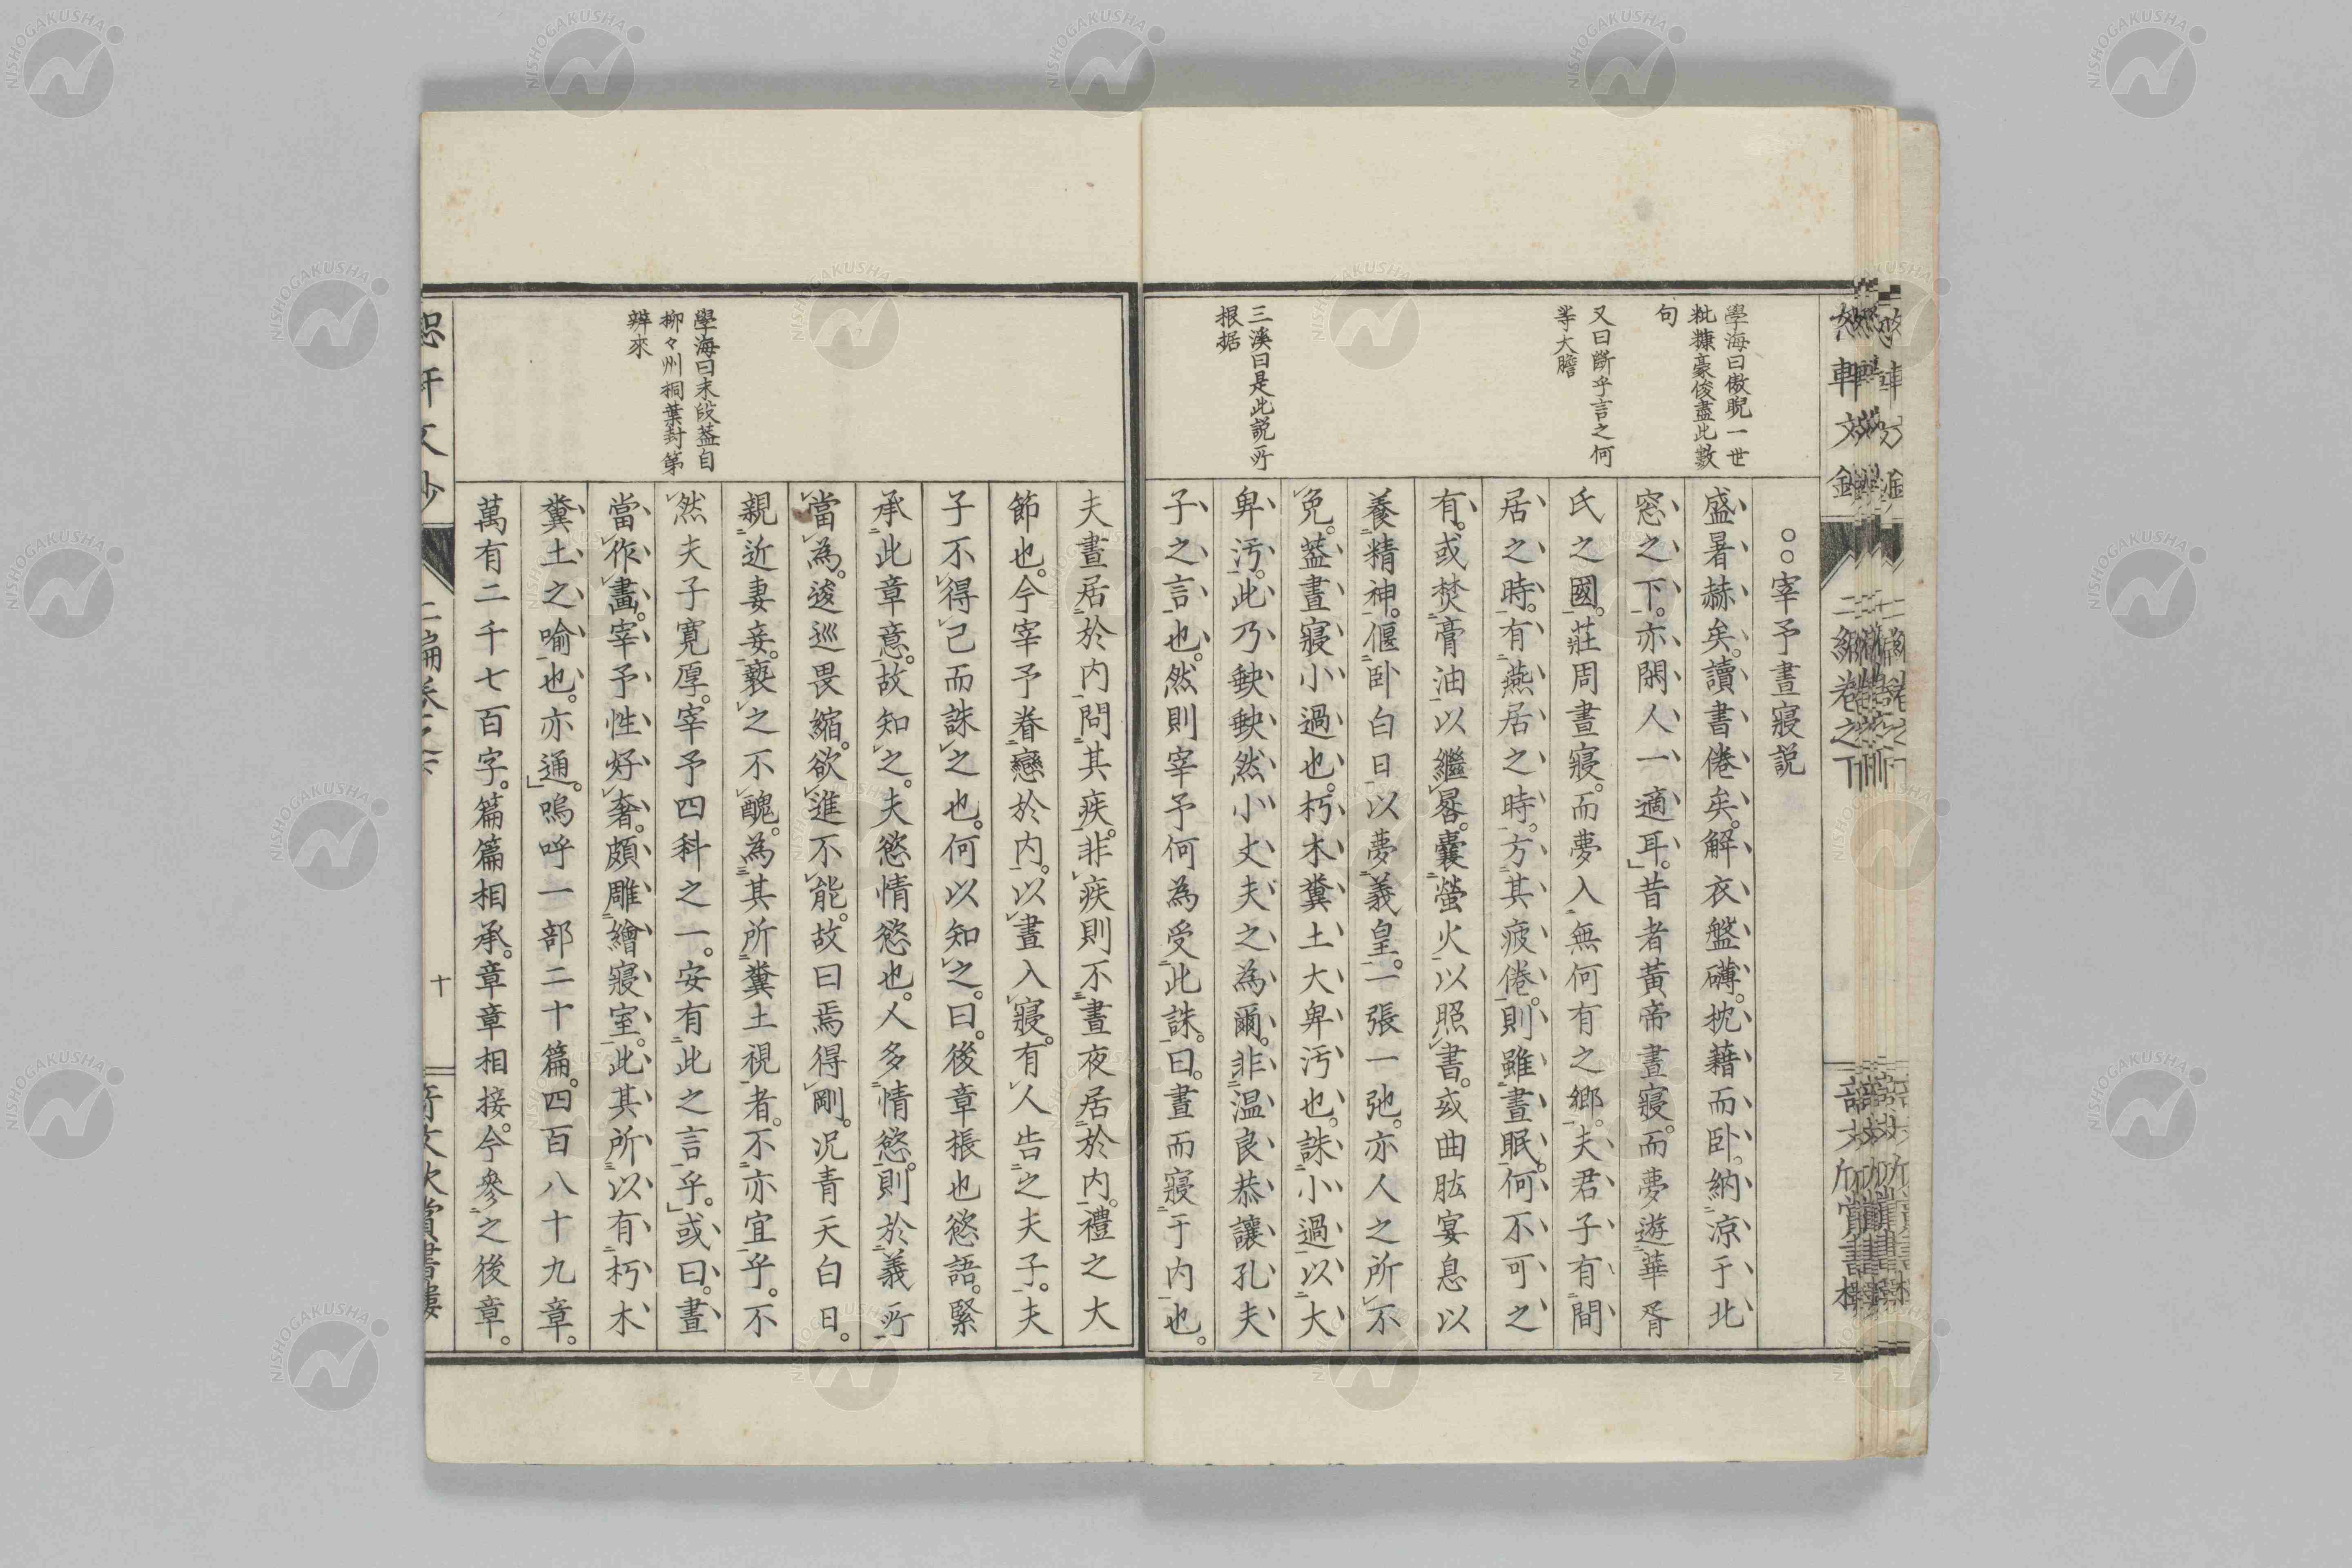 ○○宰予晝寢説
盛暑赫矣。讀書倦矣。解衣盤礴。枕藉而臥。納凉于北
窓之下。亦閑人一適耳。」昔者黃帝晝寢。而夢遊華胥
氏之國。莊周晝寢。而夢入無何有之鄉。夫君子有間
居之時。有燕居之時。方其疲倦。則雖晝眠。何不可之
有。或焚膏油以繼晷。囊螢火以照書。或曲肱宴息以
養精神。偃卧白日以夢羲皇。一張一弛。亦人之所不
免。蓋晝寢小過也。朽木糞土大卑汚也。誅小過以大
卑汚。此乃軮軮然小丈夫之為爾。非温良恭讓孔夫
子之言也。然則宰予何為受此誅。曰。晝而寢于内也。
學海曰傲睨一世
粃糠豪俊盡此數
句
又曰斷乎言之何
等大膽
三溪曰是此説所
根据
夫晝居於内。問其疾。非疾則不晝夜居於内。禮之大
節也。今宰予眷戀於内。以晝入寢。有人告之夫子。夫
子不得已而誅之也。何以知之。曰。後章棖也慾語。緊
承此章意。故知之。夫慾情慾也。人多情慾。則於義所
當為。逡巡畏縮。欲進不能。故曰焉得剛。况青天白日。
親近妻妾。褻之不醜。為其所糞土視者。不亦宜乎。不
然夫子寛厚。宰予四科之一。安有此之言乎。」或曰。晝
當作畫。宰予性好奢。頗雕繪寢室。此其所以有朽木
糞土之喻也。亦通。」嗚呼一部二十篇。四百八十九章。
萬有二千七百字。篇篇相承。章章相接。今參之後章。
學海曰末段葢自
柳々州桐葉封第
辨來
十